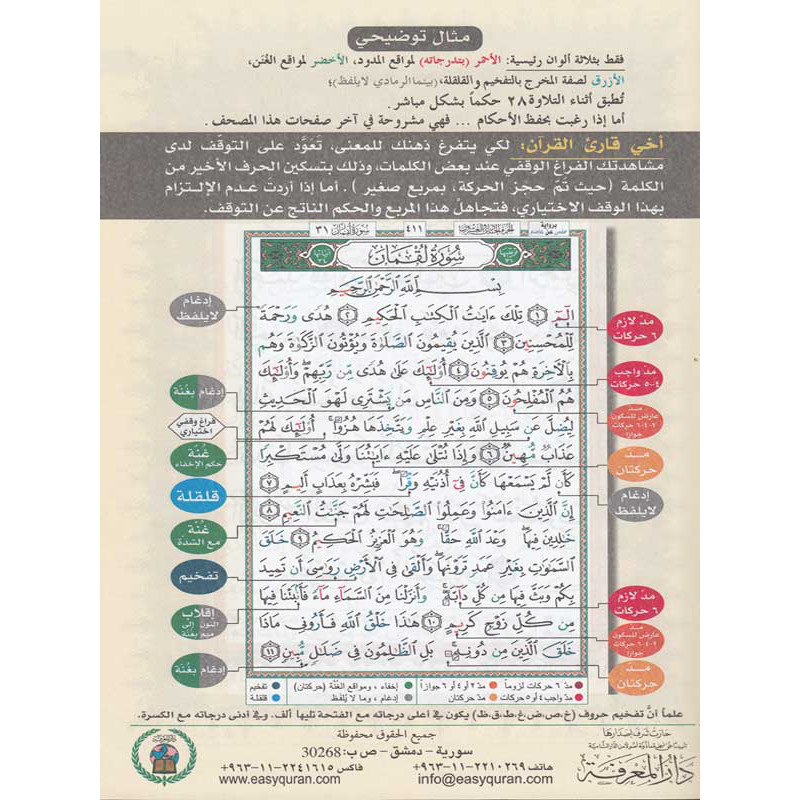 مثال توضيحي
فقط بثلاثة ألوان رئيسية: الأحمر (بتدرجاته) لمواقع المدود، الأخضر لمواقع الغُنَن،
الأزرق لصفة المخرج بالتفخيم والقلقلة، (بينما الرمادي لايلفظ)؛
تُطبق أثناء التلاوة ٢٨ حكماً بشكل مباشر.
أما إذا رغبت بحفظ الأحكام ... فهي مشروحة في آخر صفحات هذا المصحف.
أخي قارئ القرآن: لكي يتفرغ ذهنك للمعنى، تَعَوَّد على التوقف لدى
مشاهدتك الفراغ الوقفي عند بعض الكلمات، وذلك بتسكين الحرف الأخير من
الكلمة (حيث تَمَّ حجز الحركة، بمربع صغير). أما إذا أردتَ عدم الإلتزام
بهذا الوقف الاختياري، فتجاهلْ هذا المربع والحكم الناتج عن التوقف.
سورة لقمان ٣١
٤١١
برواية
سُورَةُ لُقْمَان
بِسْمِ اللَّهِ الرَّحْمَٰنِ الرَّحِيمِ
الٓمٓ ١ تِلْكَ ءَايَٰتُ الْكِتَٰبِ الْحَكِيمِ ٢ هُدًى وَرَحْمَةً
لِّلْمُحْسِنِينَ ٣ الَّذِينَ يُقِيمُونَ الصَّلَوٰةَ وَيُؤْتُونَ الزَّكَوٰةَ وَهُم
بِالْءَاخِرَةِ هُمْ يُوقِنُونَ ٤ أُوْلَٰٓئِكَ عَلَىٰ هُدًى مِّن رَّبِّهِمْ وَأُوْلَٰٓئِكَ
هُمُ الْمُفْلِحُونَ ٥ وَمِنَ النَّاسِ مَن يَشْتَرِى لَهْوَ الْحَدِيثِ
لِيُضِلَّ عَن سَبِيلِ اللَّهِ بِغَيْرِ عِلْمٍ وَيَتَّخِذَهَا هُزُوًا أُوْلَٰٓئِكَ لَهُمْ
عَذَابٌ مُّهِينٌ ٦ وَإِذَا تُتْلَىٰ عَلَيْهِ ءَايَٰتُنَا وَلَّىٰ مُسْتَكْبِرًا
كَأَن لَّمْ يَسْمَعْهَا كَأَنَّ فِىٓ أُذُنَيْهِ وَقْرًا فَبَشِّرْهُ بِعَذَابٍ أَلِيمٍ ٧
إِنَّ الَّذِينَ ءَامَنُوا وَعَمِلُوا الصَّٰلِحَٰتِ لَهُمْ جَنَّٰتُ النَّعِيمِ ٨
خَٰلِدِينَ فِيهَا وَعْدَ اللَّهِ حَقًّا وَهُوَ الْعَزِيزُ الْحَكِيمُ ٩ خَلَقَ
السَّمَٰوَٰتِ بِغَيْرِ عَمَدٍ تَرَوْنَهَا وَأَلْقَىٰ فِى الْأَرْضِ رَوَٰسِىَ أَن تَمِيدَ
بِكُمْ وَبَثَّ فِيهَا مِن كُلِّ دَآبَّةٍ وَأَنزَلْنَا مِنَ السَّمَآءِ مَآءً فَأَنۢبَتْنَا فِيهَا
مِن كُلِّ زَوْجٍ كَرِيمٍ ١٠ هَٰذَا خَلْقُ اللَّهِ فَأَرُونِى مَاذَا
خَلَقَ الَّذِينَ مِن دُونِهِ بَلِ الظَّٰلِمُونَ فِى ضَلَٰلٍ مُّبِينٍ ١١
مدّ لازم
٦ حركات
مدّ واجب
٤-٥ حركات
مدّ
عارض للسكون
٢-٤-٦ حركات
جوازاً
مدّ
حركتان
إدغام
لايلفظ
مدّ لازم
٦ حركات
مدّ
عارض للسكون
٢-٤-٦ حركات
جوازاً
مدّ
حركتان
إدغام
لايلفظ
إدغام بغُنة
فراغ وقفي
اختياري
غُنة
حكم الإخفاء
قلقلة
غُنة
مع الشدة
تفخيم
إقلاب
النون إلى
ميم بغنة
إدغام بغنة
مدّ ٦ حركات لزوماً مدّ ٢ أو ٤ أو ٦ جوازاً إخفاء، ومواقع الغُنَّة (حركتان) تفخيم
مدّ واجب ٤ أو ٥ حركات مدّ حركتان إدغام، وما لا يُلفَظ قلقلة
علماً أنَّ تفخيم حروف (خ،ص،ض،غ،ط،ق،ظ) يكون في أعلى درجاته مع الفتحة تليها ألف. وفي أدنى درجاته مع الكسرة.
جميع الحقوق محفوظة
سورية - دمشق - ص ب: 30268
هاتف ٢٢١٠٢٦٩-١١-٩٦٣+ فاكس ٢٢٤١٦١٥-١١-٩٦٣+
info@easyquran.com www.easyquran.com
حازت شرف إصدارها
دار المعرفة